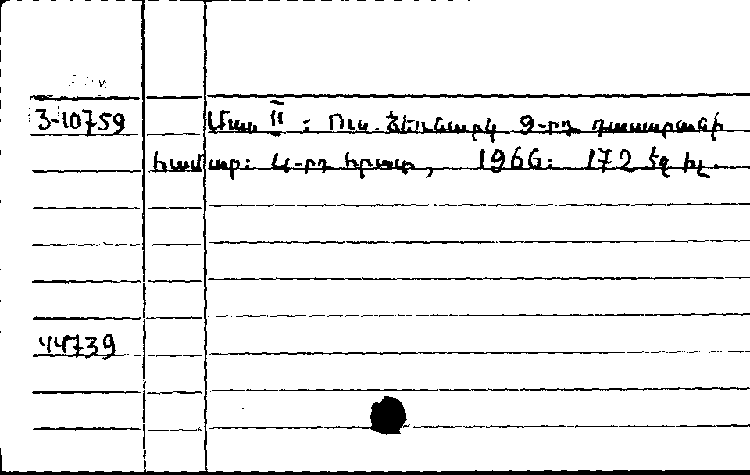 3-10759 Մաս II : Ուս. ձեռնարկ 9-րդ դասարանի
համար: 4-րդ հրատ, 1966: 172 էջ իլ.
44739